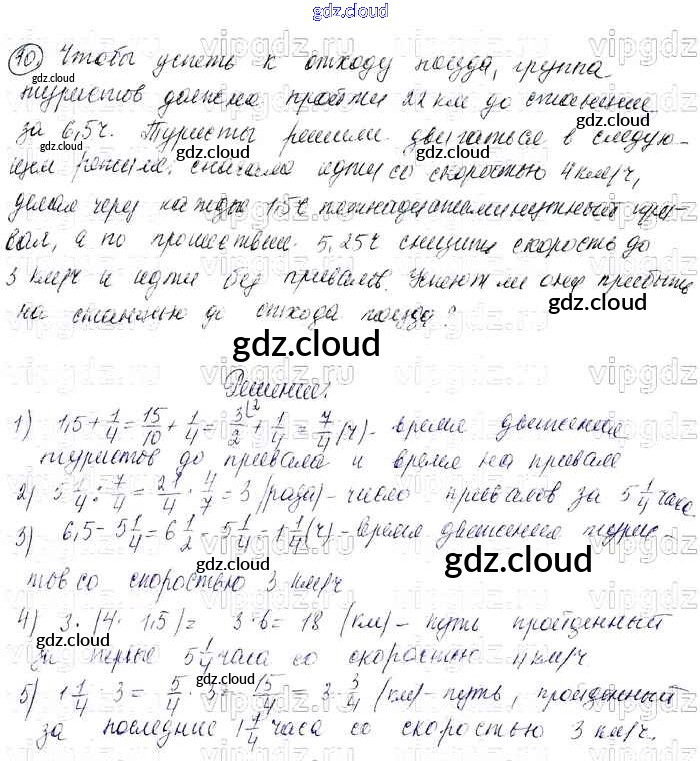 gdz.cloud
10) Чтобы успеть к отходу поезда, группа
gdz.cloud
туристов должна пройти 22 км до станции
за 6,5ч. Туристы решили двигаться в следую-
gdz.cloud
щем режиме: сначала идти со скоростью 4 км/ч,
gdz.cloud
делая через каждые 1,5ч пятнадцатиминутный при-
вал, а по прошествии 5,25ч снизить скорость до
3 км/ч и идти без привалов. Успеют ли они прибыть
gdz.cloud
на станцию до отхода поезда?
gdz.cloud
Решение:
1) 1,5 + 1/4 = 15/10 + 1/4 = 3/2 + 1/4 = 7/4 (ч) - время движения
туристов до привала и время на привале
2) 5 1/4 : 7/4 = 21/4 · 4/7 = 3 (раза) - число привалов за 5 1/4 часа
3) 6,5 - 5 1/4 = 6 1/2 - 5 1/4 = 1 1/4 (ч) - время движения турис-
gdz.cloud
тов со скоростью 3 км/ч
4) 3 · (4 · 1,5) = 3·6 = 18 (км) - путь пройденный
gdz.cloud
за первые 5 1/4 часа со скоростью 4 км/ч
gdz.cloud
5) 1 1/4 · 3 = 5/4 · 3 = 15/4 = 3 3/4 (км) - путь, пройденный
за последние 1 1/4 часа со скоростью 3 км/ч.
gdz.cloud
vipgdz.ru